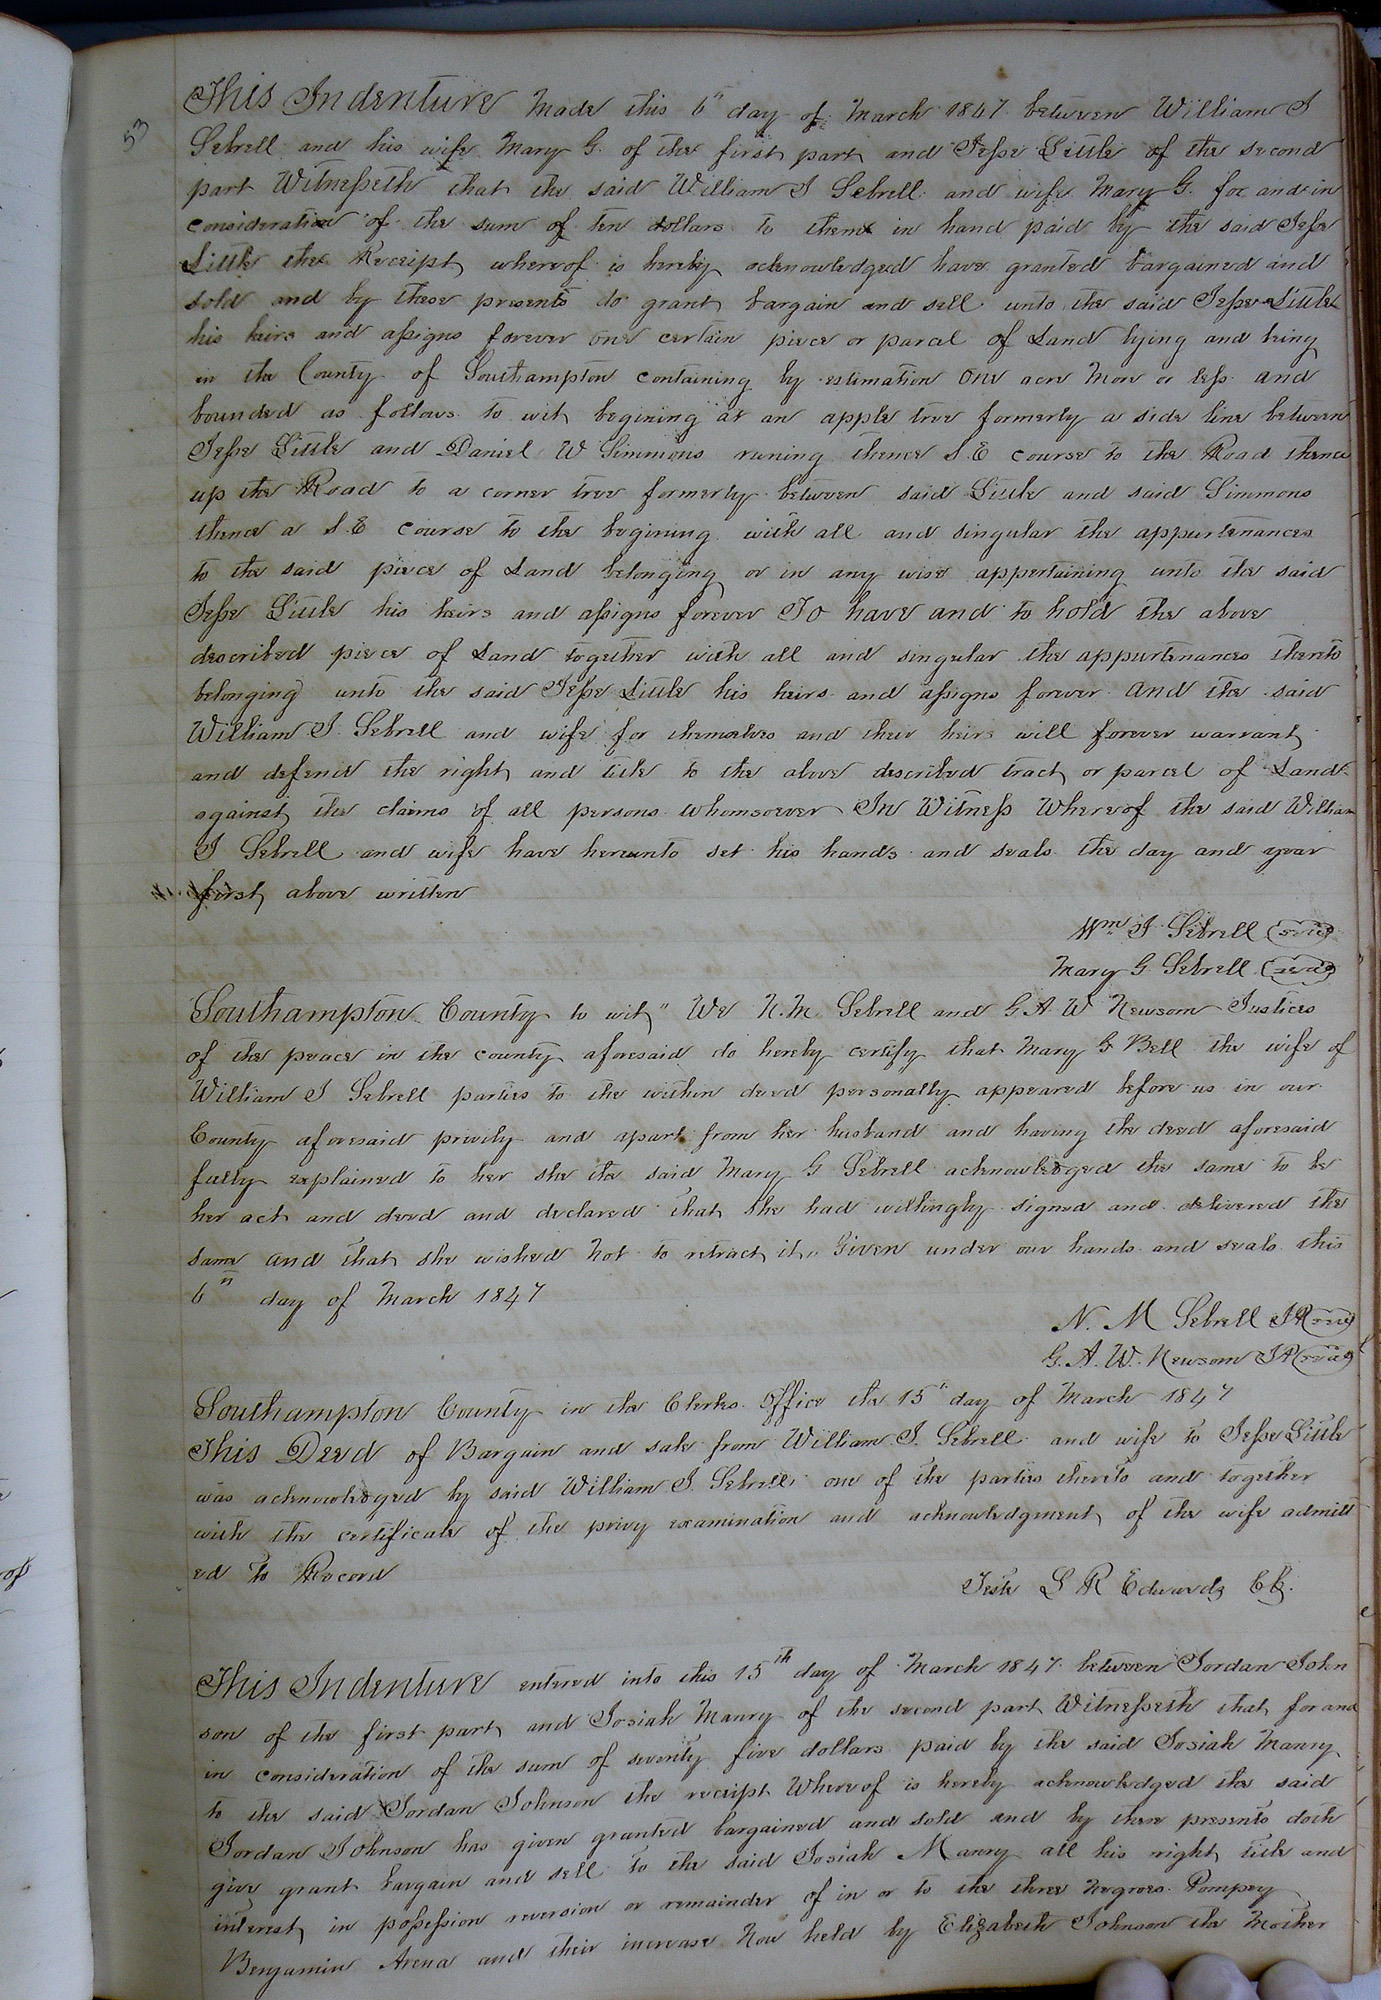 53
This Indenture Made this 6" day of March 1847 between William J
Sebrell and his wife Mary G. of the first part and Jesse Little of the second
part Witnesseth that the said William J Sebrell and wife Mary G. for and in
consideration of the sum of ten dollars to them in hand paid by the said Jesse
Little the Receipt whereof is hereby acknowledged have granted bargained and
sold and by these presents do grant bargain and sell unto the said Jesse Little
his heirs and assigns forever one certain piece or parcel of Land lying and being
in the County of Southampton containing by estimation One acre More or less and
bounded as follows to wit begining at an apple tree formerly a side line between
Jesse Little and Daniel W Simmons runing thence S.E course to the Road thence
up the Road to a corner tree formerly between said Little and said Simmons
thence a S.E course to the begining with all and singular the appurtenances
to the said piece of Land belonging or in any wise appertaining unto the said
Jesse Little his heirs and assigns forever To have and to hold the above
described piece of Land together with all and singular the appurtenances thereto
belonging unto the said Jesse Little his heirs and assigns forever And the said
William J. Sebrell and wife for themselves and their heirs will forever warrant
and defend the right and title to the above described tract or parcel of Land
against the claims of all persons whomsoever In Witness Whereof the said William
J Sebrell and wife have hereunto set his hands and seals the day and year
first above written
Wm J Sebrell (seal)
Mary G. Sebrell (seal)
Southampton County to wit" We N.M. Sebrell and G.A.W Newsom Justices
of the peace in the county aforesaid do hereby certify that Mary G Bell the wife of
William J Sebrell parties to the within deed personally appeared before us in our
County aforesaid privily and apart from her husband and having the deed aforesaid
fully explained to her she the said Mary G Sebrell acknowledged the same to be
her act and deed and declared that she had willingly signed and delivered the
same and that she wished Not to retract it" Given under our hands and seals this
6" day of March 1847
N. M Sebrell JP (seal)
G.A.W. Newsom JP (seal)
Southampton County in the Clerks Office the 15" day of March 1847
This Deed of Bargain and sale from William J. Sebrell and wife to Jesse Little
was acknowledged by said William J. Sebrell one of the parties thereto and together
with the certificate of the privy examination and acknowledgment of the wife admitt
ed to Record
Teste L R Edwards Clk.
This Indenture entered into this 15th day of March 1847 between Jordan John
son of the first part and Josiah Manry of the second part Witnesseth that for and
in consideration of the sum of seventy five dollars paid by the said Josiah Manry
to the said Jordan Johnson the receipt Whereof is hereby acknowledged the said
Jordan Johnson has given granted bargained and sold and by these presents doth
give grant bargain and sell to the said Josiah Manry all his right title and
interest in possession reversion or remainder of in or to the three Negroes Pompey
Benjamin Arena and their increase Now held by Elizabeth Johnson the Mother